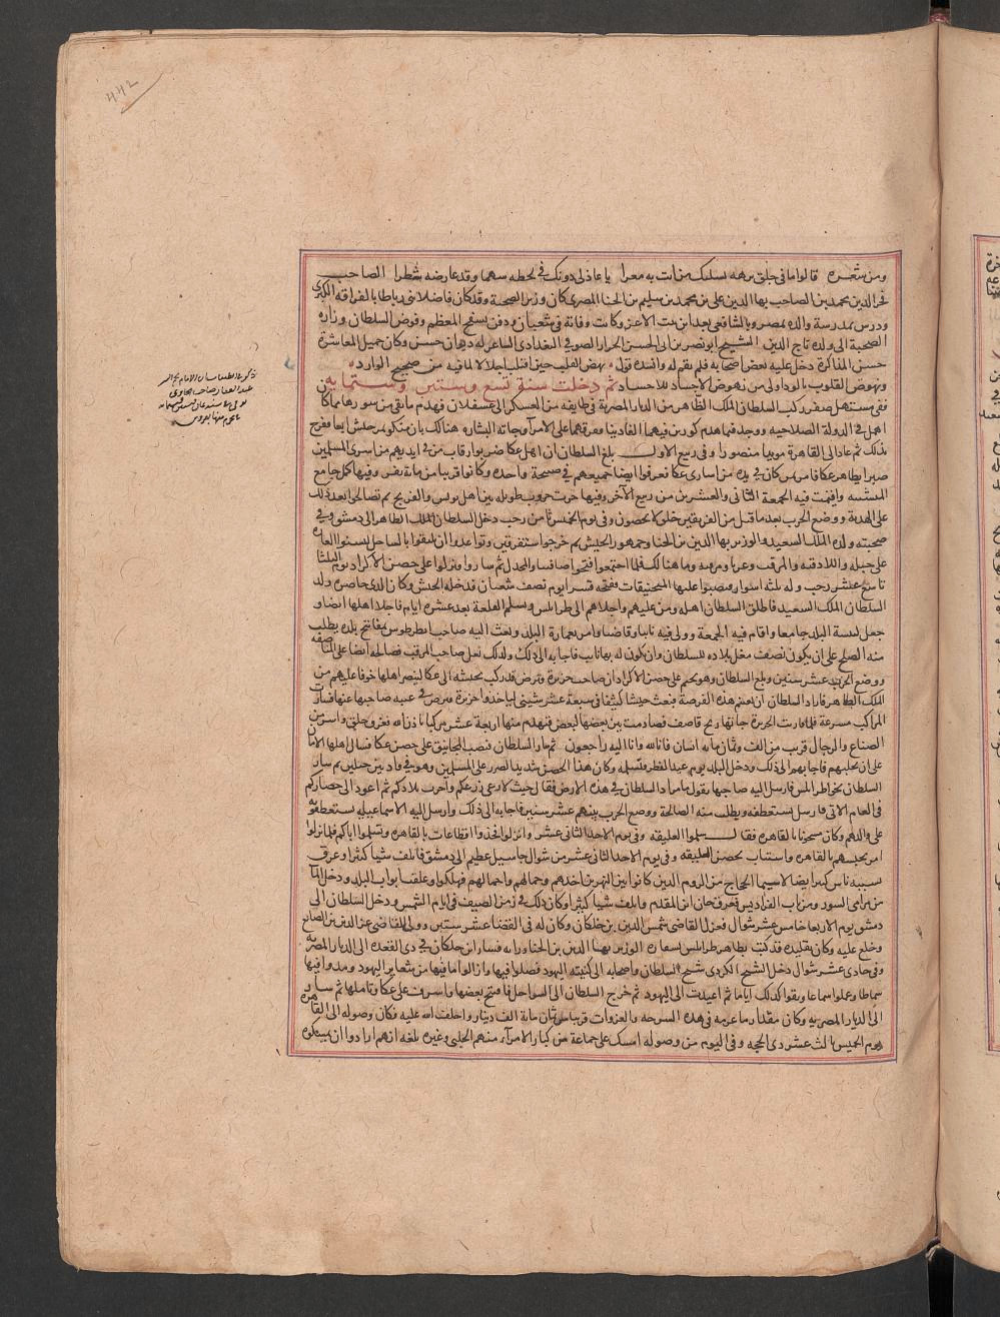 ومن شعره قالوا ما في جلق نزهة تسليك من انت به مغرا يا عاذلي دونك في لحظه سهما وقد عارضه شطرا الصاحب
فخر الدين محمد بن الصاحب بها الدين علي بن محمد بن سليم بن الحنا المصري كان وزير الصحبة وقد كان فاضلا بنى رباطا بالقرافة الكبرى
ودرس بمدرسة والده بمصر وبالشافعي بعد ابن بنت الاعز وكانت وفاته في شعبان ودفن بسفح المعظم وفوض السلطان وزارة
الصحبة الى ولده تاج الدين الشيخ ابو نصر بن ابي الحسن الحرار الصوفي البغدادي الشاعر له ديوان حسن وكان جميل المعاشرة
حسن المذاكرة دخل عليه بعض اصحابه فلم يقم له وانشده قوله نهض القلب حين اقبلت اجلالا لما فيه من صحيح الوارد
ونهوض القلوب بالود اولى من نهوض الاجساد للاجساد ثم دخلت سنة تسع وستين وستمايه
ففي مستهل صفر ركب السلطان الملك الظاهر من الديار المصرية في طايفه من العسكر الى عسقلان فهدم ما بقي من سورها مما كان
اهمل في الدولة الصلاحيه ووجد فيما هدم كوزين فيهما الفا دينار ففرقهما على الامرآ وجاته البشارة هنالك بان منكوتمر جيش ابغا ففرح
بذلك ثم عاد الى القاهرة مويدا منصورا وفي ربيع الاول بلغ السلطان ان اهل عكا ضربوا رقاب من في ايديهم من اسرى المسلمين
صبرا بظاهر عكا فامر بمن كان في يده من اسارى عكا فغرقوا ايضا جميعهم في صبيحة واحده وكانوا قريبا من مايه نفس وفيها كمل جامع
المنشيه واقيمت فيه الجمعة الثاني والعشرين من ربيع الآخر وفيها جرت حروب طويله بين اهل تونس والفرنج ثم تصالحوا بعد ذلك
على الهدنة ووضع الحرب بعد ما قتل من الفريقين خلق لا يحصون وفي يوم الخميس ثامن رجب دخل السلطان الملك الظاهر الى دمشق وفي
صحبته ولده الملك السعيد والوزير بها الدين بن الحنا وجمهور الجيش ثم خرجوا متفرقين وتواعدوا ان يلتقوا بالساحل ليشنوا الغارة
على جبله واللاذقيه والمرقب وعرقا ومرقيه وما هنالك فلما اجتمعوا فتحوا صافيتا والمجدل ثم ساروا ونزلوا على حصن الاكراد يوم الثلثا
تاسع عشر رجب وله ثلثه اسوار فنصبوا عليها المنجنيقات ففتحه قسرا يوم نصف شعبان فدخله الجيش وكان الذي حاصره ولد
السلطان الملك السعيد فاطلق السلطان اهله ومن عليهم واجلاهم الى طرابلس وتسلم القلعة بعد عشرة ايام فاجلا اهلها ايضا و
جعل كنيسة البلد جامعا واقام فيه الجمعة وولى فيه نايبا وقاضيا وامر بعمارة البلد وبعث اليه صاحب انطرطوس بمفاتيح بلده يطلب
منه الصلح على ان يكون نصف مغل بلاده للسلطان وان يكون له بها نايب فاجابه الى ذلك وكذلك فعل صاحب المرقب فصالحه ايضا على المناصفه
ووضع الحرب عشر سنين وبلغ السلطان وهو مخيم على حصن الاكراد ان صاحب جزيرة قبرص قد ركب بجيشه الى عكا لينصر اهلها خوفا عليهم من
الملك الظاهر فاراد السلطان ان يغتنم هذه الفرصة فبعث جيشا كثيفا في سبعة عشر شيني لياخذوا جزيرة قبرص في غيبة صاحبها عنها فسارت
المراكب مسرعة فلما قاربت الجزيرة جاتها ريح قاصف فصادمت بين بعضها البعض فتهدم منها اربعة عشر مركبا باذن الله فغرق خلق واسر من
الصناع والرجال قريب من الف وثمان مايه انسان فانا لله وانا اليه راجعون ثم سار السلطان فنصب المجانيق على حصن عكا فسال اهلها الامان
على ان يخليهم فاجابهم الى ذلك ودخل البلد يوم عيد الفطر وتسلمه وكان هذا الحصن شديد الضرر على المسلمين وهو في واد بين جبلين ثم سار
السلطان نحو طرابلس فارسل اليه صاحبها يقول ما مراد السلطان في هذه الارض فقال جيت لارعى زرعكم واخرب بلادكم ثم اعود الى حصاركم
في العام الاتي فارسل يستعطفه ويطلب منه المصالحة ووضع الحرب بينهم عشر سنين فاجابه الى ذلك وارسل اليه الاسماعيليه يستعطفونه
على والدهم وكان مسجونا بالقاهرة فقال سلموا العليقه وانزلوا فخذوا اقطاعات بالقاهرة وتسلموا اباكم فلما نزلوا
امر بحبسهم بالقاهرة واستناب بحصن العليقه وفي يوم الاحد الثاني عشر من شوال جا سيل عظيم الى دمشق فاتلف شيا كثيرا وغرق
بسببه ناس كثير لا سيما الحجاج من الروم الذين كانوا بين النهرين اخذهم وجمالهم واحمالهم فهلكوا وغلقت ابواب البلد ودخل الما
من مرامي السور ومن باب الفراديس فغرق خان ابن المقدم واتلف شيا كثيرا وكان ذلك في زمن الصيف في ايام المشمش ودخل السلطان الى
دمشق يوم الاربعا خامس عشر شوال فعزل القاضي شمس الدين بن خلكان وكان له في القضا عشر سنين وولى القاضي عز الدين بن الصايغ
وخلع عليه وكان تقليده قد كتب بظاهر طرابلس بسفارة الوزير بهاء الدين بن الحنا فسار ابن خلكان في ذي القعده الى الديار المصريه
وفي حادي عشر شوال دخل الشيخ الكردي شيخ السلطان واصحابه الى كنيسة اليهود فصلوا فيها وازالوا ما فيها من شعاير اليهود ومدوا فيها
سماطا وعملوا سماعا وبقوا كذلك اياما ثم اعيدت الى اليهود ثم خرج السلطان الى السواحل فافتتح بعضها واشرف على عكا وتاملها ثم سار
الى الديار المصريه وكان مقدار ما غرمه في هذه السرحه والغزوات قريبا من ثمان مايه الف دينار واخلف الله عليه فكان وصوله الى القاهرة
يوم الخميس ثالث عشر ذي الحجه وفي اليوم من وصوله امسك على جماعة من كبار الامرآء منهم الحلبي وغيره بلغه انهم ارادوا ان يمسكوه